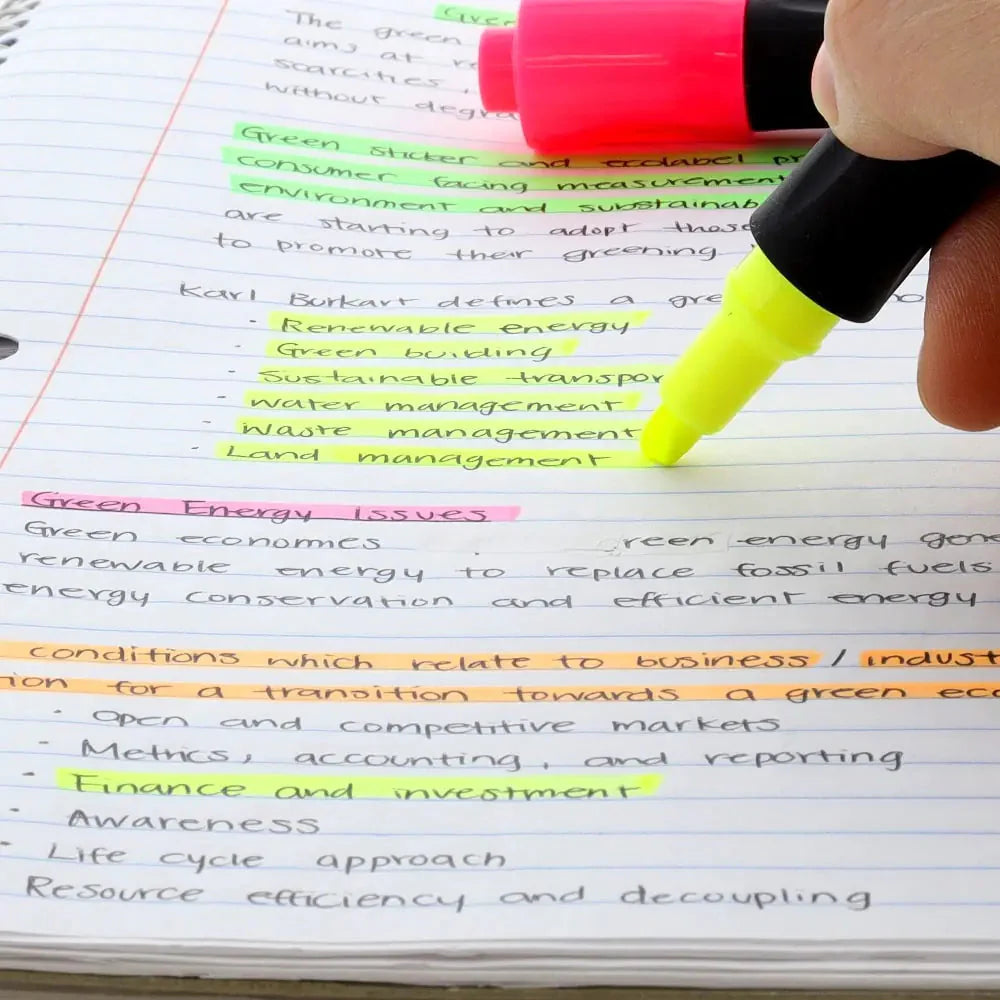 Green
The green
aims at re
scarcities,
without degra
Green sticker and ecolabel pr
consumer facing measurement
environment and substainab
are starting to adopt these
to promote their greening
Karl Burkart defines a gre
· Renewable energy
· Green building
· Sustainable transpor
· Water management
· Waste management
· Land management
Green Energy Issues
Green economies reen energy gene
renewable energy to replace fossil fuels
energy conservation and efficient energy
conditions which relate to business / indust
ion for a transition towards a green eco
· Open and competitive markets
- Metrics, accounting, and reporting
- Finance and investment
· Awareness
- Life cycle approach
Resource efficiency and decoupling